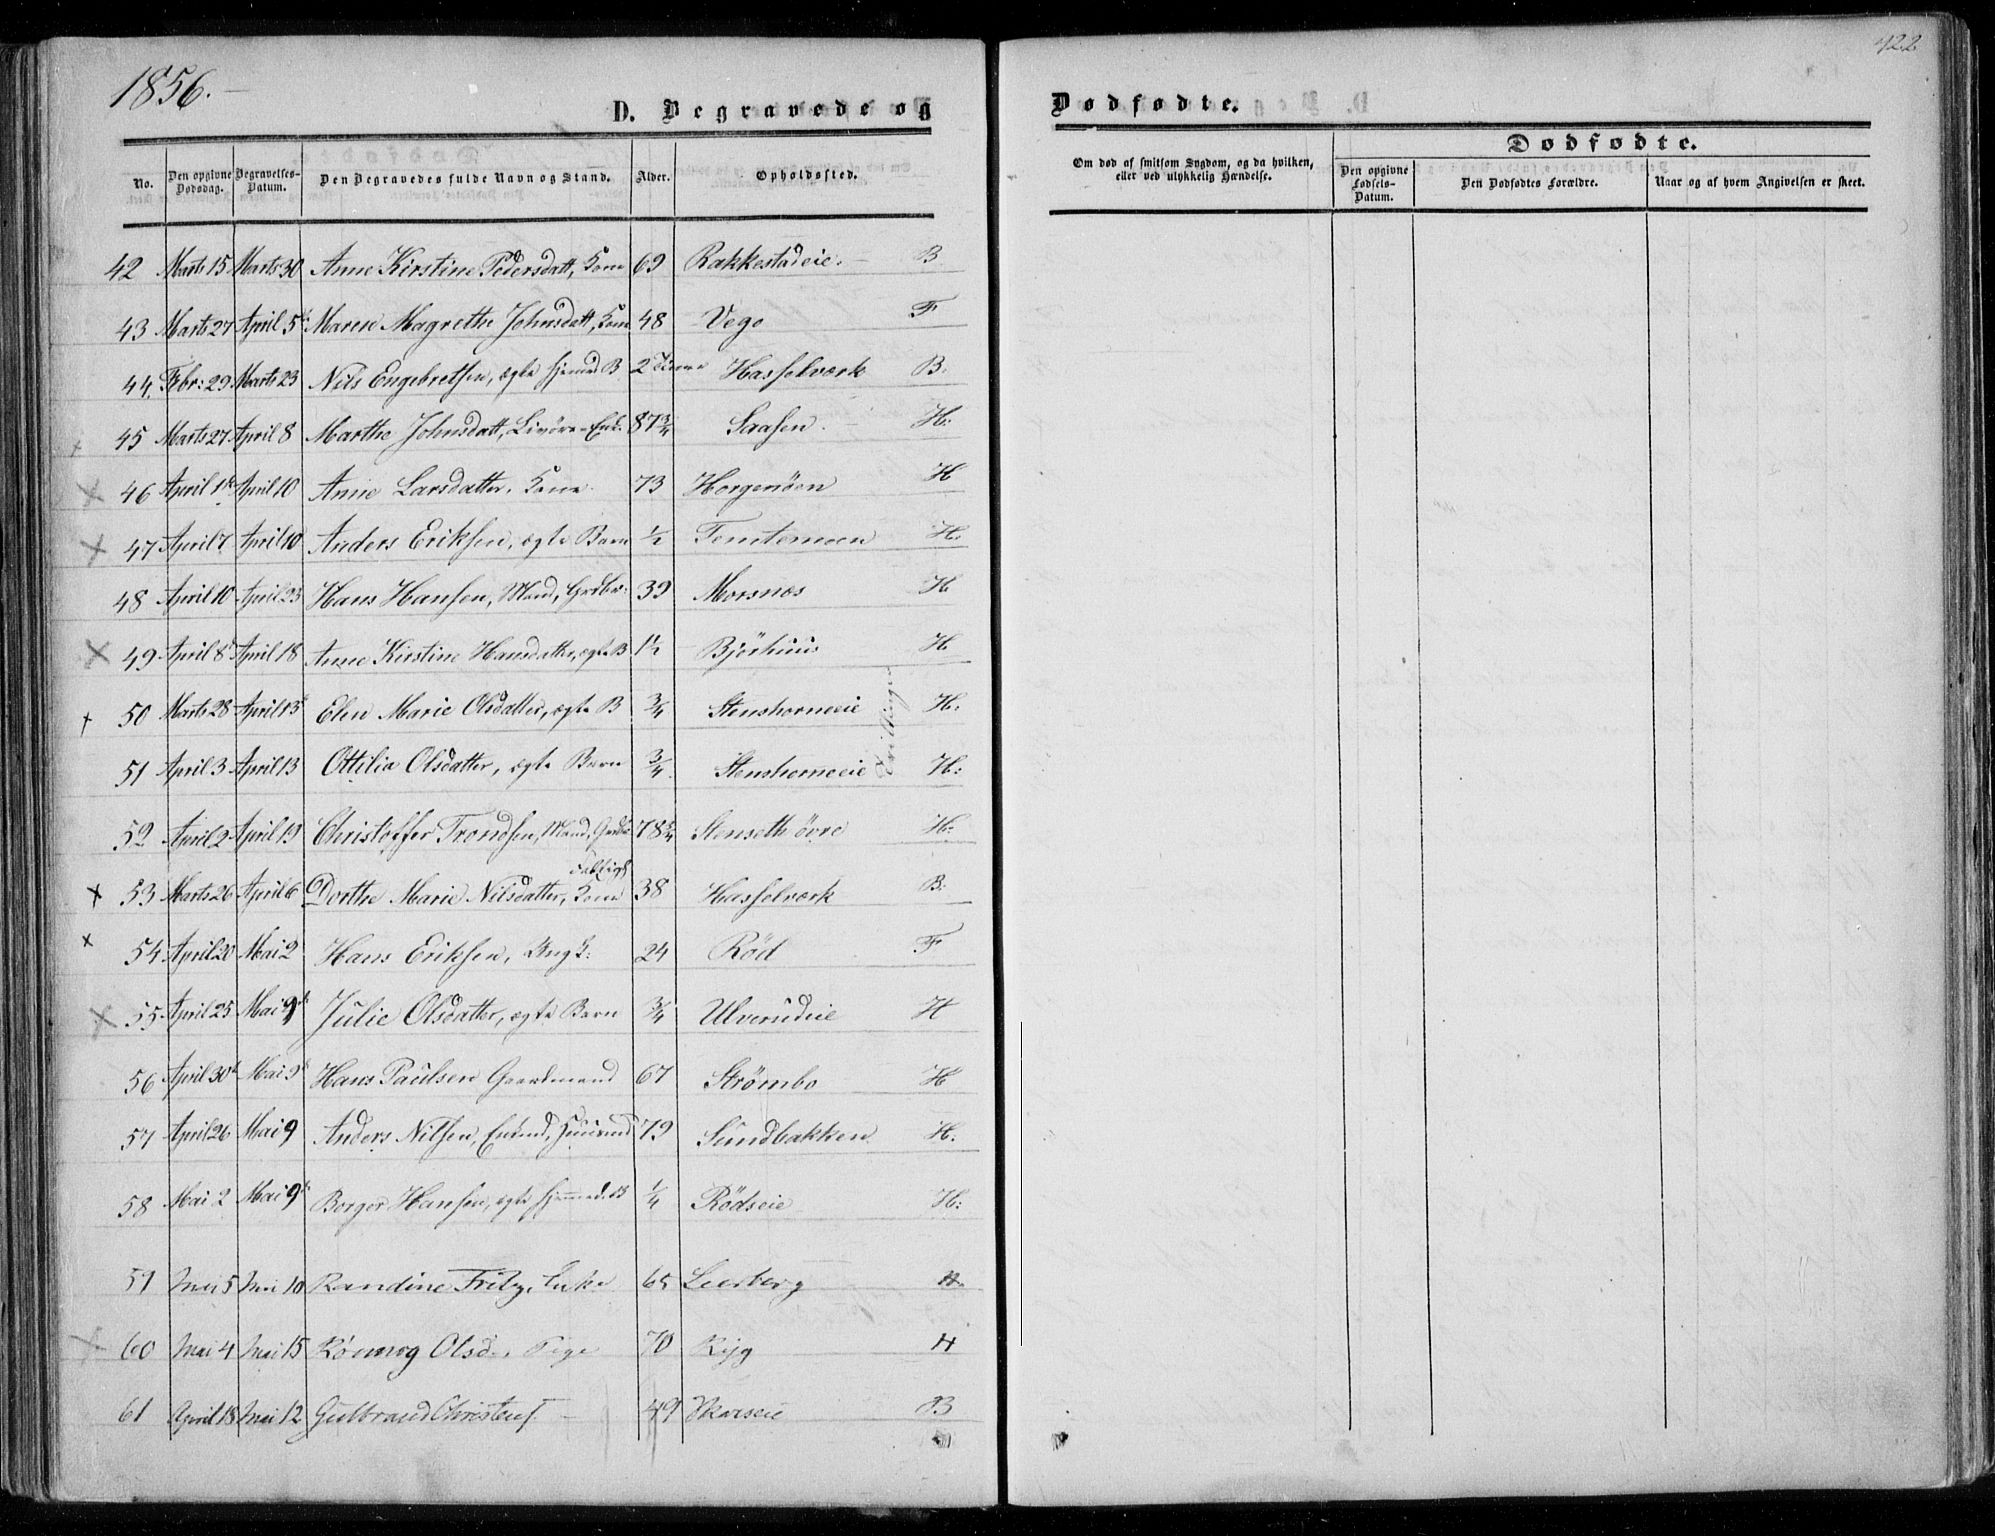 1856.
422
D. Begravede og
Dødfødte.
No.
Den opgivne Dødsdag.
Begravelses-Datum.
Den Begravedes fulde Navn og Stand.
Alder.
Opholdssted.
Om død af smitsom Sygdom, og da hvilken, eller ved ulykkelig Hændelse.
Dødfødte.
Den opgivne Fødsels-Datum.
Den Dødfødtes Forældre.
Naar og af hvem Angivelsen er skeet.
42 Marts 15 Marts 30 Anne Kirstine Pedersdatt, Kone 69 Rakkestadeie. B
43 Marts 27 April 5 Maren Magrethe Johnsdatt, Kone 48 Vego F
44. Febr: 29 Marts 23 Nils Engebretsen, ægte hjemed. B 2 Timer Hasselværk B:
45 Marts 27 April 8 Marthe Johnsdatt, Livöre-Enk. 87 3/4 Saasen. H:
46 April 1 April 10 Anne Larsdatter, Kone 73 Horgenöen H
47 April 7 April 10 Anders Eriksen, ægte Barn 1/2 Temtemoen H.
48 April 10 April 23 Hans Hansen, Mand, Grdbr: 39 Morsnæs H
49 April 8 April 18 Anne Kirstine Hansdatter, ægte B 1 1/2 Bjørhuus H
50 Marts 28 April 13 Elen Marie Olsdatter, ægte B 3/4 Stenshorneeie H.
Trillinger
51 April 3 April 13 Ottilia Olsdatter, ægte Barn 3/4 Stenshorneeie H:
52 April 2 April 13 Christoffer Trondsen, Mand, Grdbr 78 3/4 Stenseth övre H:
53 Marts 26 April 6 Dorthe Marie Nilsdatter, Kone 38 Hasselværk B:
54 April 20 Mai 2 Hans Eriksen, Ungk: 24 Rød F
55 April 25 Mai 9 Julie Olsdatter, ægte Barn 3/4 Ulverudeie H
56 April 30 Mai 9 Hans Paulsen Gaardmand 67 Strømbo H
57 April 26 Mai 9 Anders Nilsen, Enkmd, Huusmd 79 Sundbakken H.
58 Mai 2 Mai 9 Borger Hansen, ægte hjemmed. B 1/4 Rödseie H:
59 Mai 5 Mai 10 Randine Fritz, Enke 65 Leerberg H
60 Mai 4 Mai 15 Rönnog Olsd., Pige 70 Ryg H
61 April 18 Mai 12 Gulbrand Christens. 49 B